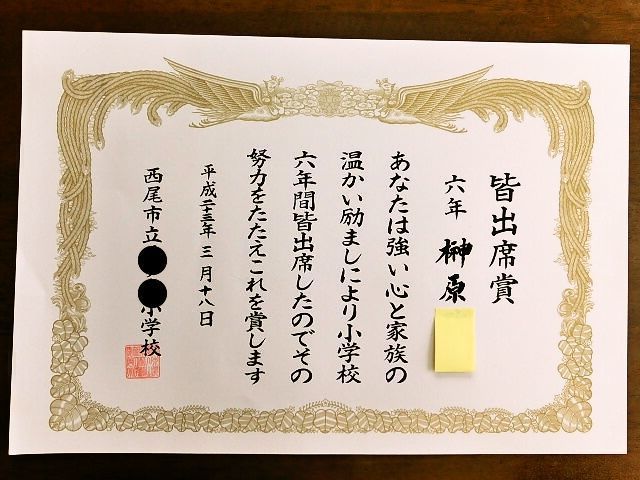 皆出席賞
六年 榊原
あなたは強い心と家族の
温かい励ましにより小学校
六年間皆出席したのでその
努力をたたえこれを賞します
平成二十三年 三月十八日
西尾市立 小学校